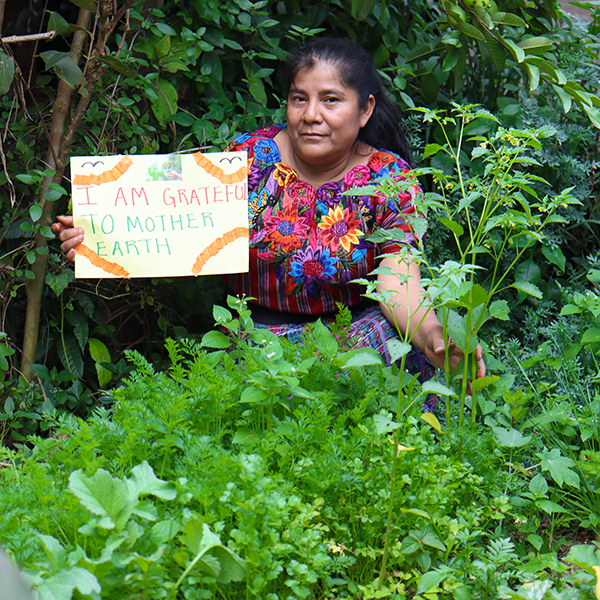 I AM GRATEFU
TO MOTHER
EARTH